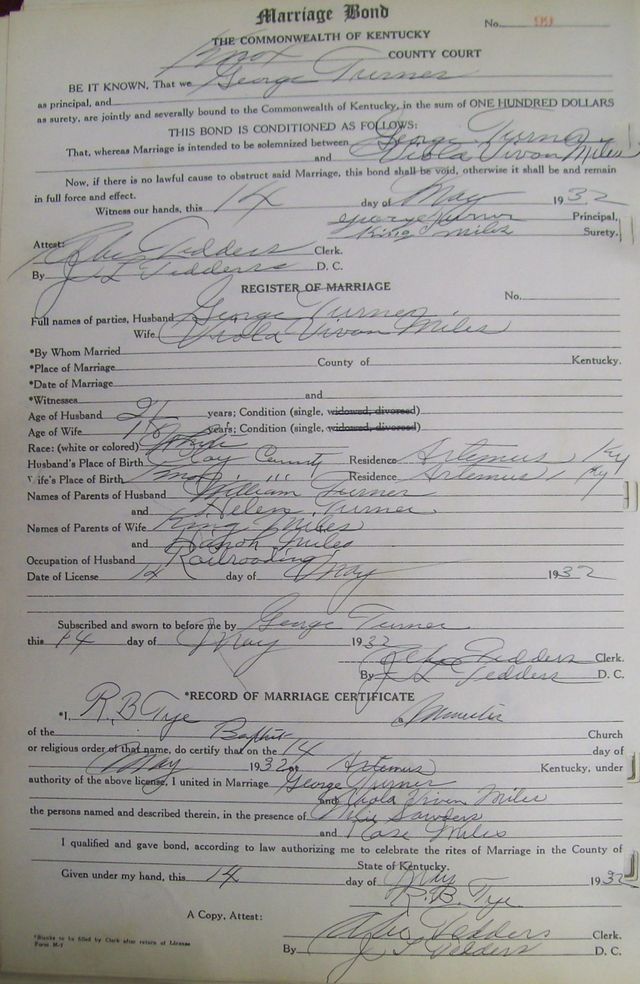 Marriage Bond
No. 99
THE COMMONWEALTH OF KENTUCKY
Knox COUNTY COURT
BE IT KNOWN, That we George Turner
as principal, and
as surety, are jointly and severally bound to the Commonwealth of Kentucky, in the sum of ONE HUNDRED DOLLARS
THIS BOND IS CONDITIONED AS FOLLOWS:
That, whereas Marriage is intended to be solemnized between George Turner
and Viola Vivan Miles
Now, if there is no lawful cause to obstruct said Marriage, this bond shall be void, otherwise it shall be and remain
in full force and effect.
Witness our hands, this 14 day of May 1932
George Turner Principal,
King Miles Surety.
Attest: Abe Tedders Clerk.
By J L Tedders D. C.
REGISTER OF MARRIAGE
No.
Full names of parties, Husband George Turner
Wife Viola Vivan Miles
*By Whom Married
*Place of Marriage County of Kentucky.
*Date of Marriage
*Witnesses and
Age of Husband 21 years; Condition (single, widowed, divorced)
Age of Wife 18 years; Condition (single, widowed, divorced)
Race: (white or colored) White
Husband's Place of Birth Clay County Residence Artemus, Ky
Wife's Place of Birth Knox " " Residence Artemus, Ky
Names of Parents of Husband William Turner
and Helen Turner
Names of Parents of Wife King Miles
and Hanoh Miles
Occupation of Husband Railroading
Date of License 14 day of May 1932
Subscribed and sworn to before me by George Turner
this 14 day of May 1932
Abe Tedders Clerk.
By J L Tedders D. C.
*RECORD OF MARRIAGE CERTIFICATE
*I, R. B Tye a minister
of the Baptist Church
or religious order of that name, do certify that on the 14 day of
May 1932 at Artemus Kentucky, under
authority of the above license, I united in Marriage George Turner
and Viola Vivan Miles
the persons named and described therein, in the presence of Sawders
and Rose Miles
I qualified and gave bond, according to law authorizing me to celebrate the rites of Marriage in the County of
State of Kentucky.
Given under my hand, this 14 day of May 1932
R. B. Tye
A Copy, Attest:
Abe Tedders Clerk.
By J L Tedders D. C.
*Blanks to be filled by Clerk after return of License
Form M-7